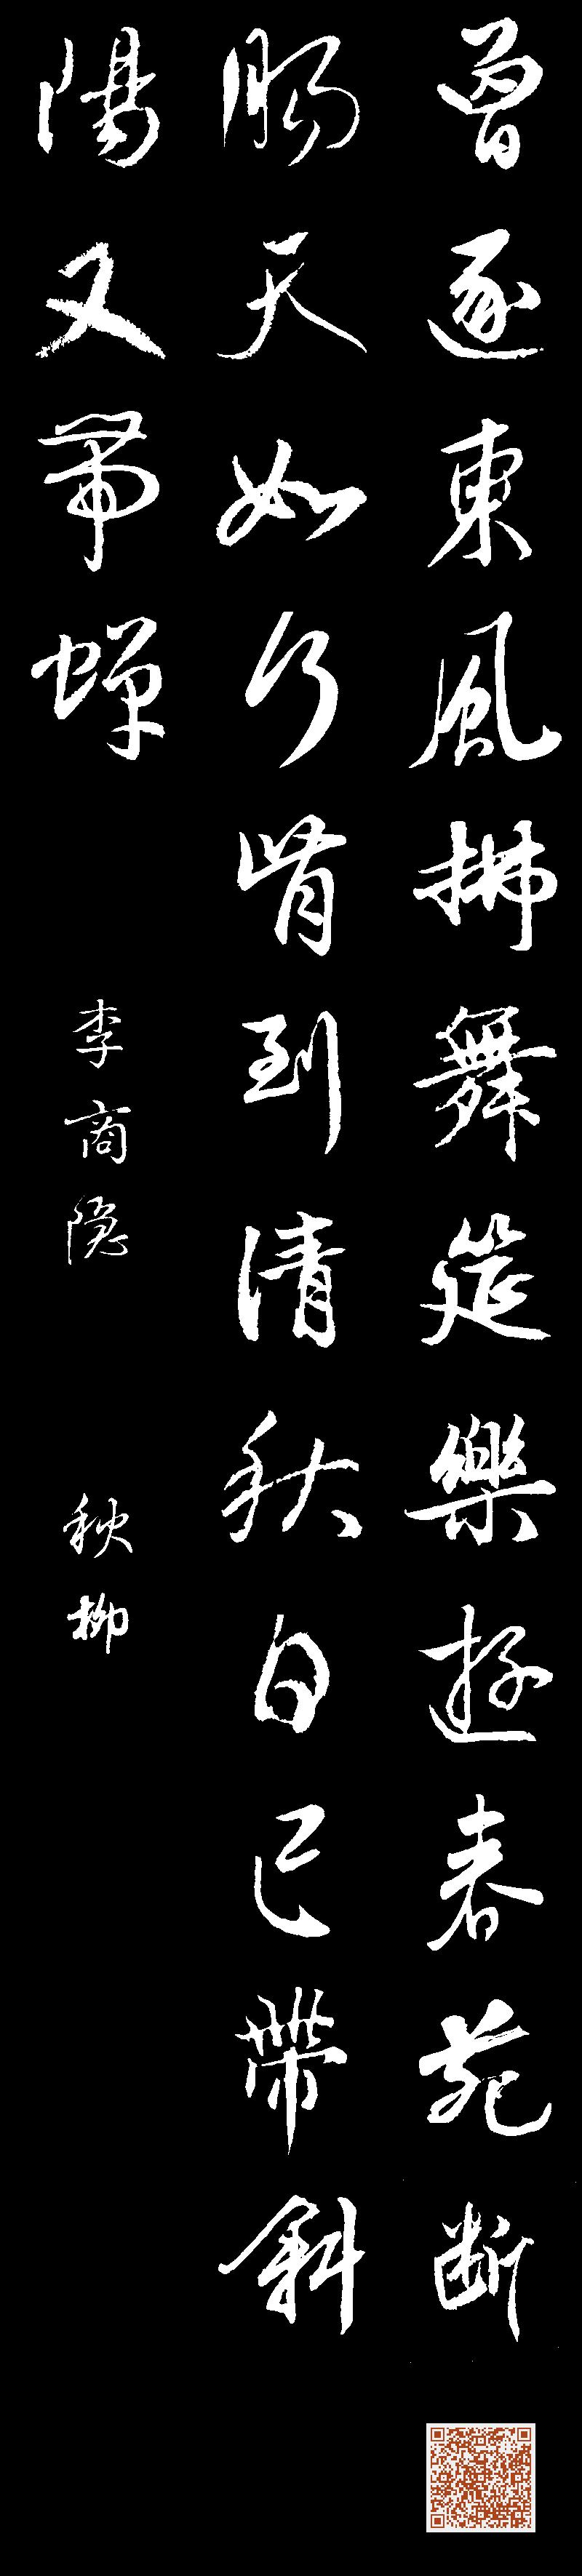 曾逐東風拂舞筵樂遊春苑断
腸天如何肯到清秋日已帶斜
陽又带蝉
李商隐
秋柳